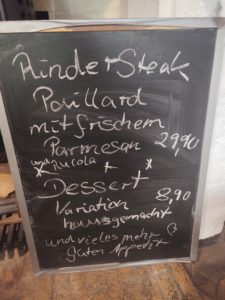 Rinder Steak
Paillard
mit frischem
Parmesan 29,90
und Rucola
Dessert
Variation 8,90
hausgemacht
und vieles mehr
guten Appetit